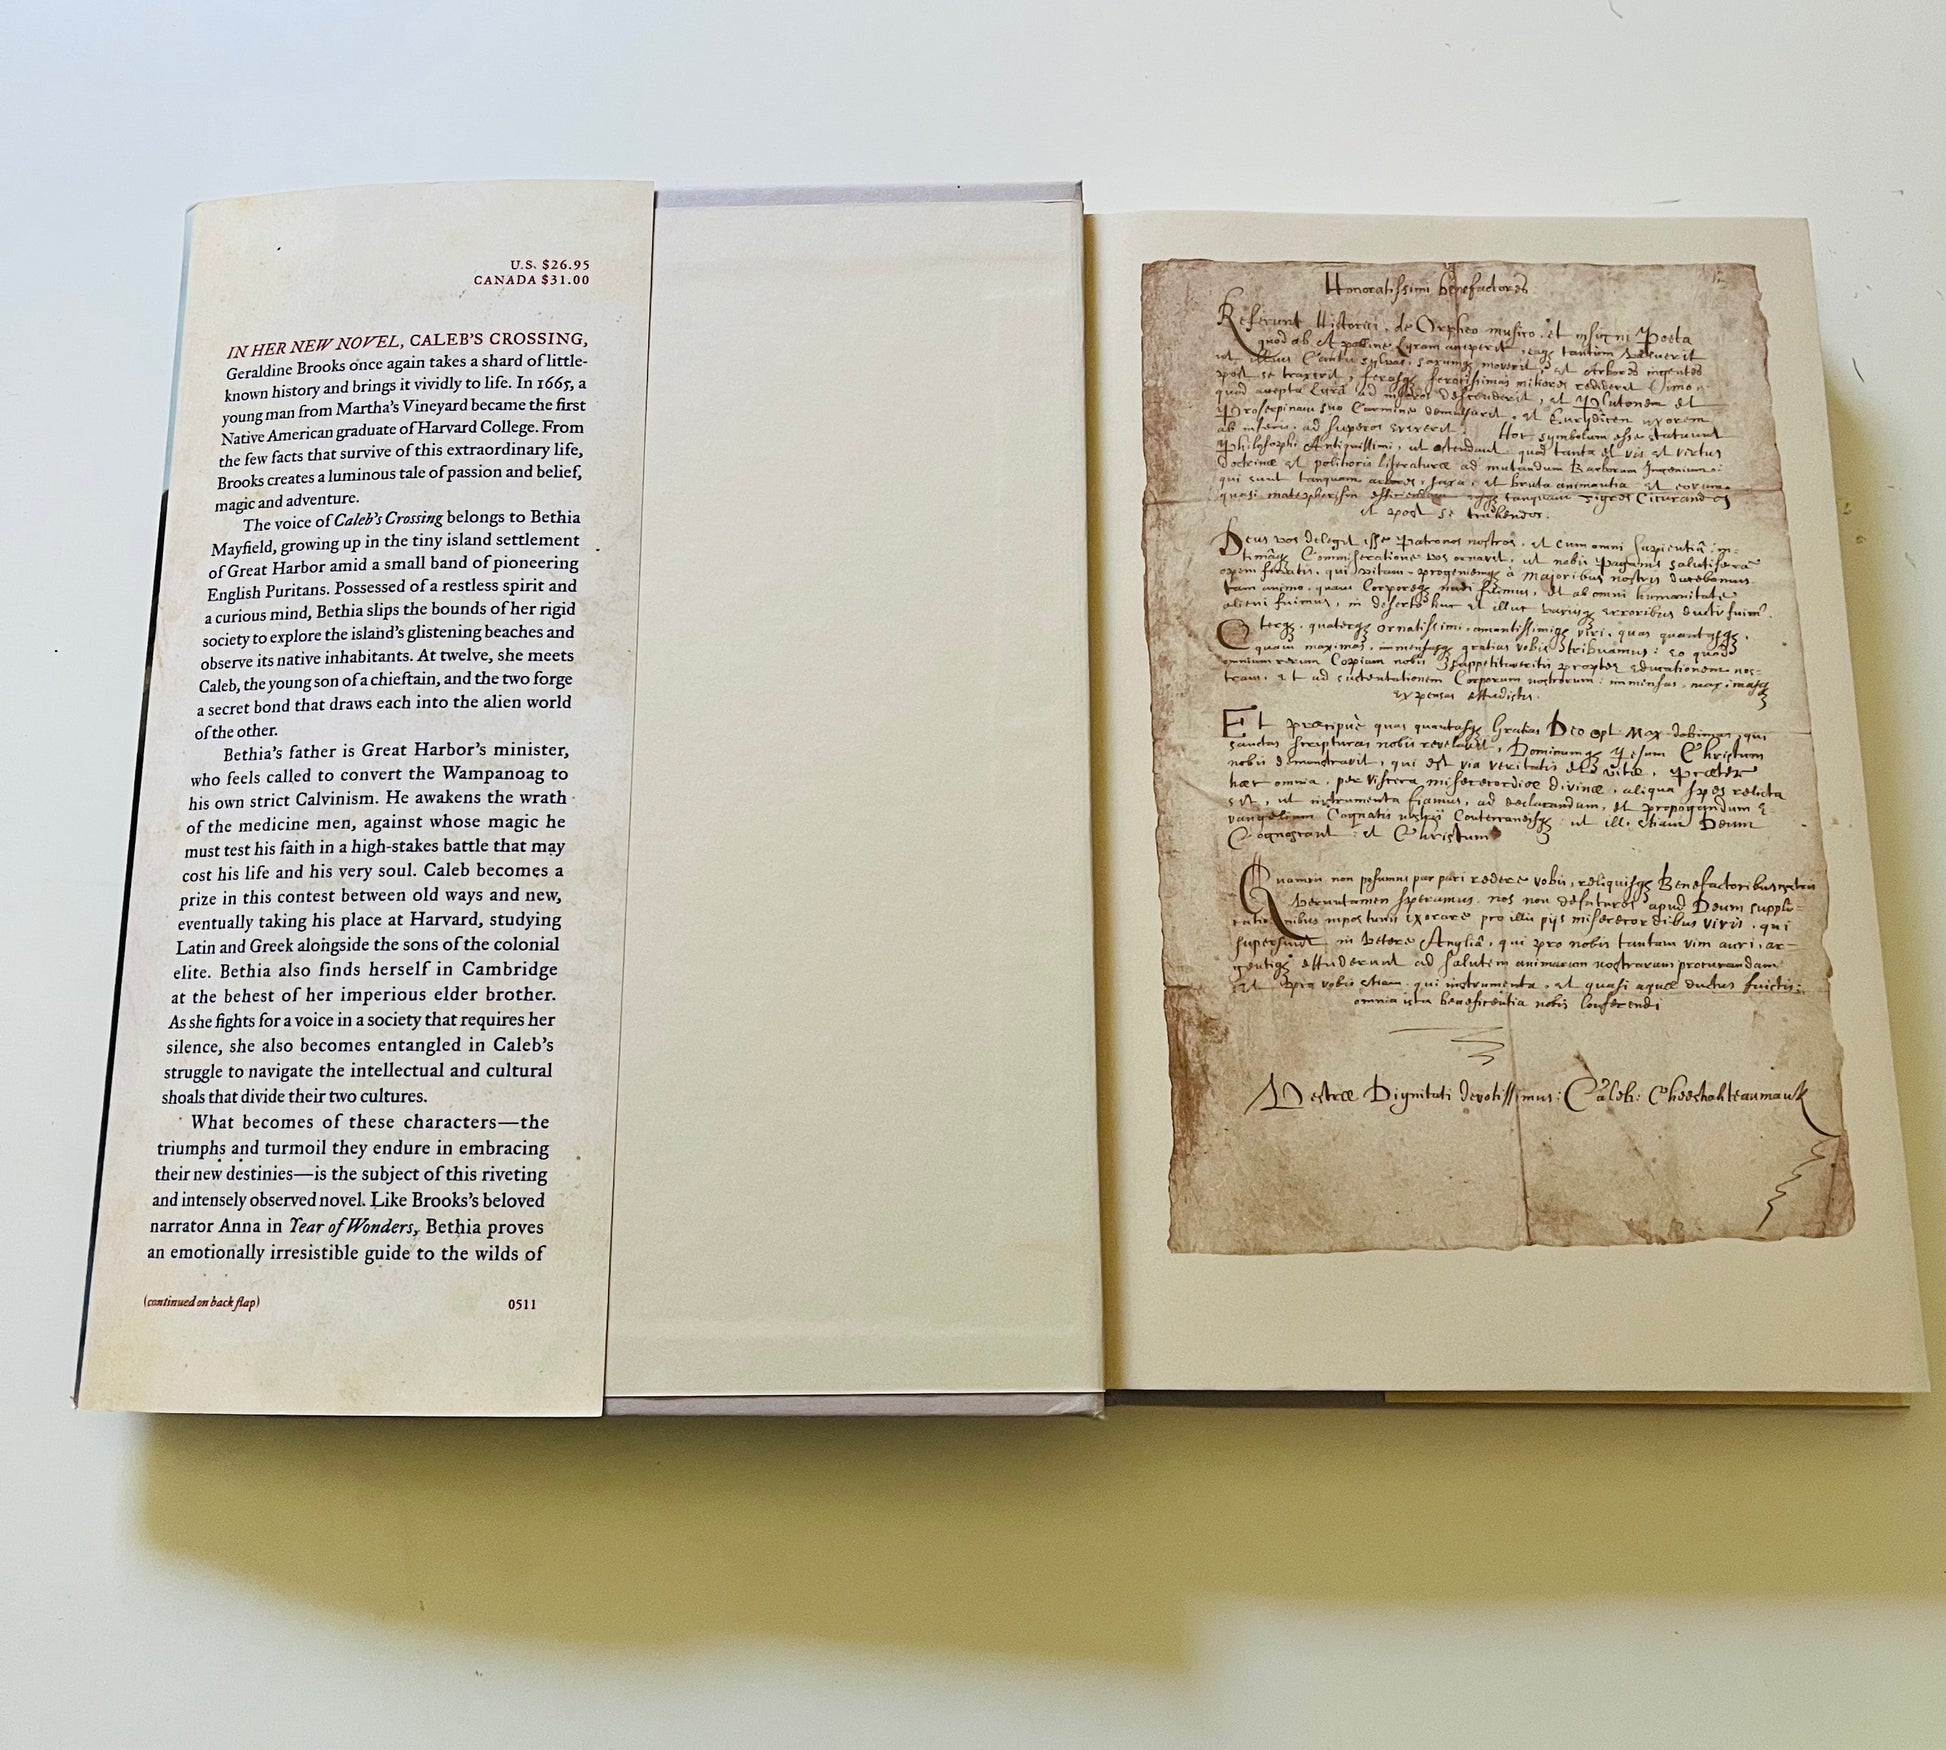 U.S. $26.95
CANADA $31.00
IN HER NEW NOVEL, CALEB'S CROSSING,
Geraldine Brooks once again takes a shard of little-
known history and brings it vividly to life. In 1665, a
young man from Martha's Vineyard became the first
Native American graduate of Harvard College. From
the few facts that survive of this extraordinary life,
Brooks creates a luminous tale of passion and belief,
magic and adventure.
The voice of Caleb's Crossing belongs to Bethia
Mayfield, growing up in the tiny island settlement
of Great Harbor amid a small band of pioneering
English Puritans. Possessed of a restless spirit and
a curious mind, Bethia slips the bounds of her rigid
society to explore the island's glistening beaches and
observe its native inhabitants. At twelve, she meets
Caleb, the young son of a chieftain, and the two forge
a secret bond that draws each into the alien world
of the other.
Bethia's father is Great Harbor's minister,
who feels called to convert the Wampanoag to
his own strict Calvinism. He awakens the wrath
of the medicine men, against whose magic he
must test his faith in a high-stakes battle that may
cost his life and his very soul. Caleb becomes a
prize in this contest between old ways and new,
eventually taking his place at Harvard, studying
Latin and Greek alongside the sons of the colonial
elite. Bethia also finds herself in Cambridge
at the behest of her imperious elder brother.
As she fights for a voice in a society that requires her
silence, she also becomes entangled in Caleb's
struggle to navigate the intellectual and cultural
shoals that divide their two cultures.
What becomes of these characters—the
triumphs and turmoil they endure in embracing
their new destinies—is the subject of this riveting
and intensely observed novel. Like Brooks's beloved
narrator Anna in Year of Wonders, Bethia proves
an emotionally irresistible guide to the wilds of
(continued on back flap) 0511
Honoratissimi benefactores
Referunt Historici, de Orpheo musico, et insigni Poeta
quod ab Apolline Lyram acceperit, eaq tantum valuerit
ut illius Cantu sylvas, saxumq moverit, et arbores ingentes
post se traxerit, ferasq ferocissimas mitiores rediderit
quod accepta Lyra ad inferos descenderit, et Plutonem et
Proserpinam suo Carmine demulserit, et Eurydicen uxorem
ab inferis ad superos evexerit. Hoc symbolum esse statuunt
Philosophi Antiquissimi, ut ostendant quod tanta et vis et virtus
doctrinæ et politioris literaturæ ad mutandum Barbarum Ingenium:
qui sunt tanquam arbores, saxa, et bruta animantia et eorum
quasi tanquam Tigres Cicurandos
et post se trahendos.
Deus vos delegit esse Patronos nostros, et cum omni sapientiâ in-
timâq Commiseratione vos ornavit, ut nobis Paganis salutiferã
opem feratis, qui vitam progeniemq à Majoribus nostris ducebamus
tam animo quam Corporeq nudi fuimus, et ab omni humanitate
alieni fuimus, in deserto huc et illuc variisq erroribus ducti fuimus
O terq, quaterq ornatissimi, amantissimiq viri, quas quantasq
quam maximas, immensasq gratias vobis tribuamus: eo quod
omnium rerum Copiam nobis suppetitaveritis propter educationem nos-
tram, et ad sustentationem Corporum nostrorum: immensas, maximasq
expensas effudistis.
Et præcipuè quas quantasq Gratias Deo opt. Max. dabimus, qui
sanctas scripturas nobis revelavit, Dominumq Jesum Christum
nobis demonstravit, qui est via veritatis et vitæ, Præter
hæc omnia, per viscera misericordiæ divinæ, aliqua spes relicta
sit, ut instrumenta fiamus, ad declarandum, et propagandum E-
vangelium Cognatis nostris Conterraneisq: ut illi etiam Deum
Cognoscant: et Christum
Quamvis non possumus par pari redere vobis, reliquisq Benefactoribus nostris
Veruntamen speramus, nos non defuturos apud Deum suppli-
cationibus importunis exorare pro illis pijs misericordibus viris, qui
supersunt in vetere Angliâ, qui pro nobis tantam vim auri, ar-
gentiq effuderunt ad salutem animarum nostrarum procurandam
et pro vobis etiam, qui instrumenta, et quasi aquæ ductus fuistis:
omnia ista beneficentia nobis Conferendi
Vestræ Dignitati devotissimus: Caleb: Cheeshahteaumauk